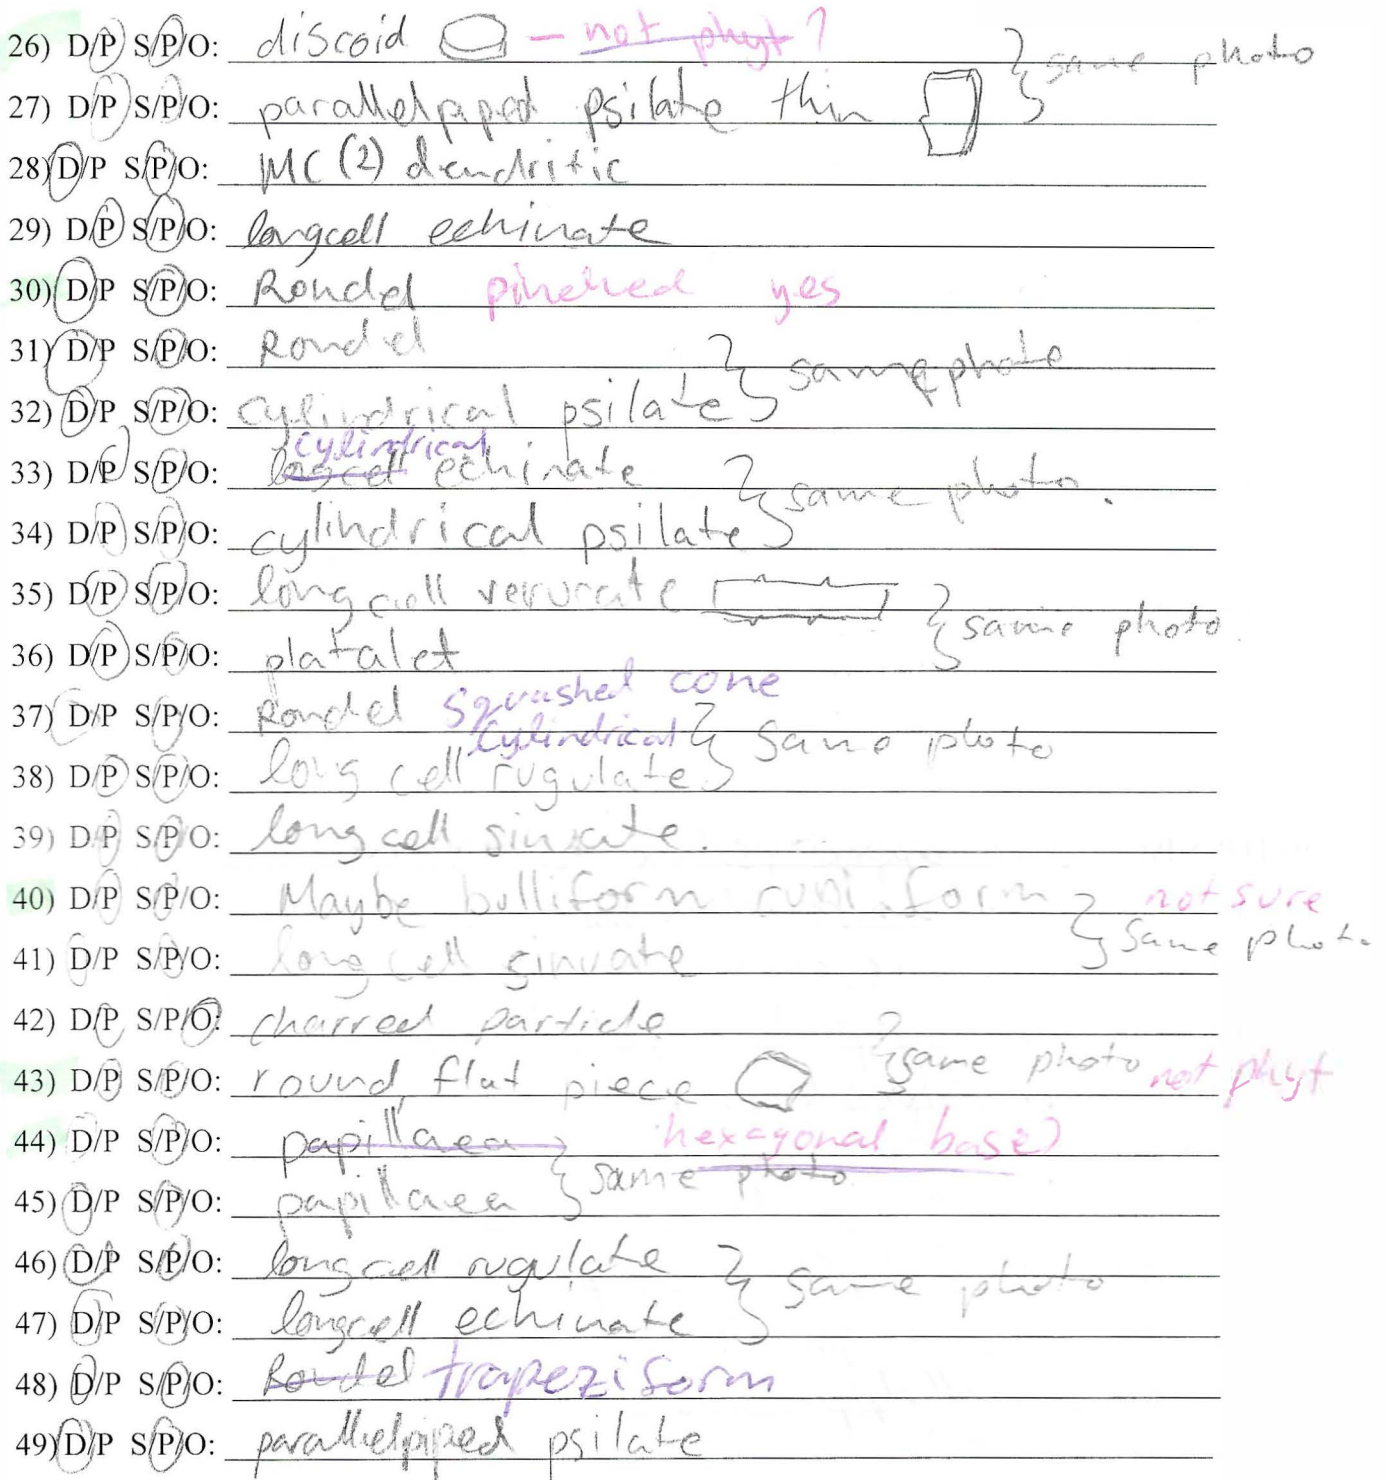 26) D/P S/P/O: discoid - not phyt?
} same photo
27) D/P S/P/O: parallelpiped psilate thin
28) D/P S/P/O: MC (2) dendritic
29) D/P S/P/O: longcell echinate
30) D/P S/P/O: Rondel pinched yes
31) D/P S/P/O: Rondel
} same photo
32) D/P S/P/O: cylindrical psilate
cylindrical
33) D/P S/P/O: longcell echinate
} same photo.
34) D/P S/P/O: cylindrical psilate
35) D/P S/P/O: long cell verucate
} same photo.
36) D/P S/P/O: platalet
37) D/P S/P/O: Rondel squashed cone
cylindrical } same photo
38) D/P S/P/O: long cell rugulate
39) D/P S/P/O: long cell sinuate.
40) D/P S/P/O: Maybe bulliform cuniform not sure
} same photo
41) D/P S/P/O: long cell sinuate
42) D/P S/P/O: charred particle
} same photo
43) D/P S/P/O: round, flat piece not phyt
44) D/P S/P/O: papillaea hexagonal base?
} same photo
45) D/P S/P/O: papillaea
46) D/P S/P/O: longcell rugulate
} same photo
47) D/P S/P/O: longcell echinate
48) D/P S/P/O: Rondel trapeziform
49) D/P S/P/O: parallelpiped psilate